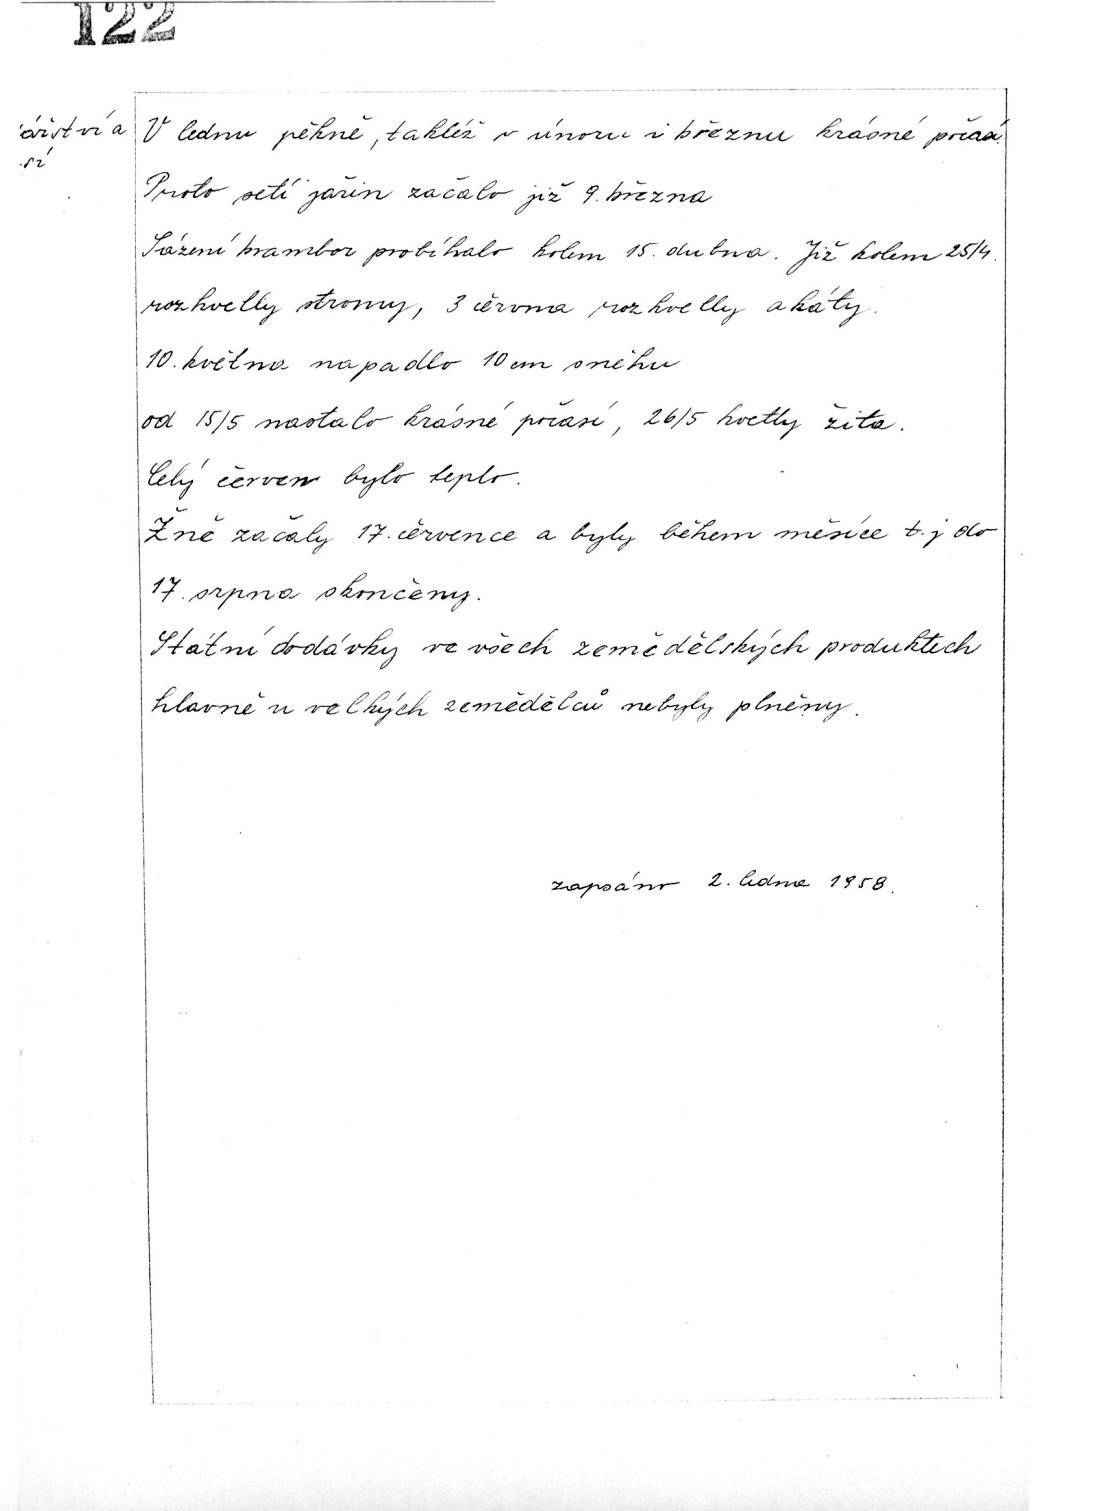 122
ářství a
sí
V lednu pěkně, taktéž v únoru i březnu krásné počasí.
Proto setí jařin začalo již 9. března
Sázení brambor probíhalo kolem 15. dubna. Již kolem 25/4.
rozkvetly stromy, 3 června rozkvetly akáty.
10. května napadlo 10 cm sněhu
od 15/5 nastalo krásné počasí, 26/5 kvetly žita.
Celý červen bylo teplo.
Žně začaly 17. července a byly během měsíce t.j do
17. srpna skončeny.
Státní dodávky ve všech zemědělských produktech
hlavně u velkých zemědělců nebyly plněny.
zapsáno 2. ledna 1958.